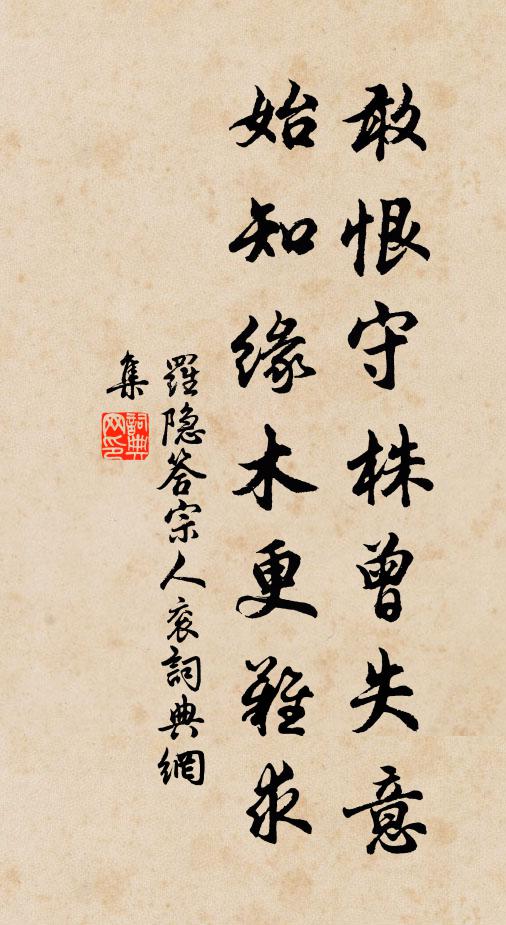 敢恨守株曾失意
始知緣木更難求
羅隐答宗人衮詞典網
集
詞典
网印